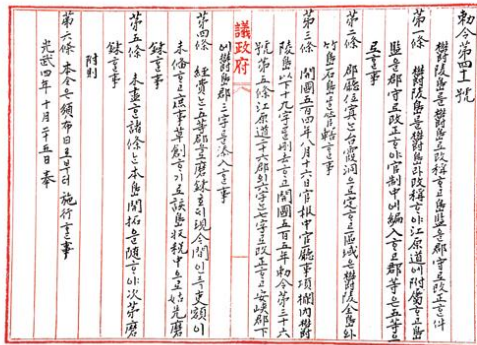 勅令第四十一號
鬱陵島를鬱島로改稱ᄒᆞ고島監을郡守로改正ᄒᆞᆫ件
第一條 鬱陵島를鬱島라改稱ᄒᆞ야江原道에附屬ᄒᆞ고島
監을郡守로改正ᄒᆞ야官制中에編入ᄒᆞ고郡等은五等으
로ᄒᆞᆯ事
第二條 郡廳位寘ᄂᆞᆫ台霞洞으로定ᄒᆞ고區域은鬱陵全島와
竹島石島ᄅᆞᆯ管轄ᄒᆞᆯ事
第三條 開國五百四年八月十六日官報中官廳事項欄內鬱
陵島以下十九字를刪去ᄒᆞ고開國五百五年勅令第三十六
號第五條江原道二十六郡의六字ᄂᆞᆫ七字로改正ᄒᆞ고安峽郡下
議政府
에鬱島郡三字를添入ᄒᆞᆯ事
第四條 經費ᄂᆞᆫ五等郡으로磨鍊호ᄃᆡ現今間인즉吏額이
未備ᄒᆞ고庶事草創ᄒᆞ기로該島收稅中으로姑先磨
鍊ᄒᆞᆯ事
第五條 未盡ᄒᆞᆫ諸條ᄂᆞᆫ本島開拓을隨ᄒᆞ야次第磨
鍊ᄒᆞᆯ事
附則
第六條 本令은頒布日로부터施行ᄒᆞᆯ事
光武四年十月二十五日奉